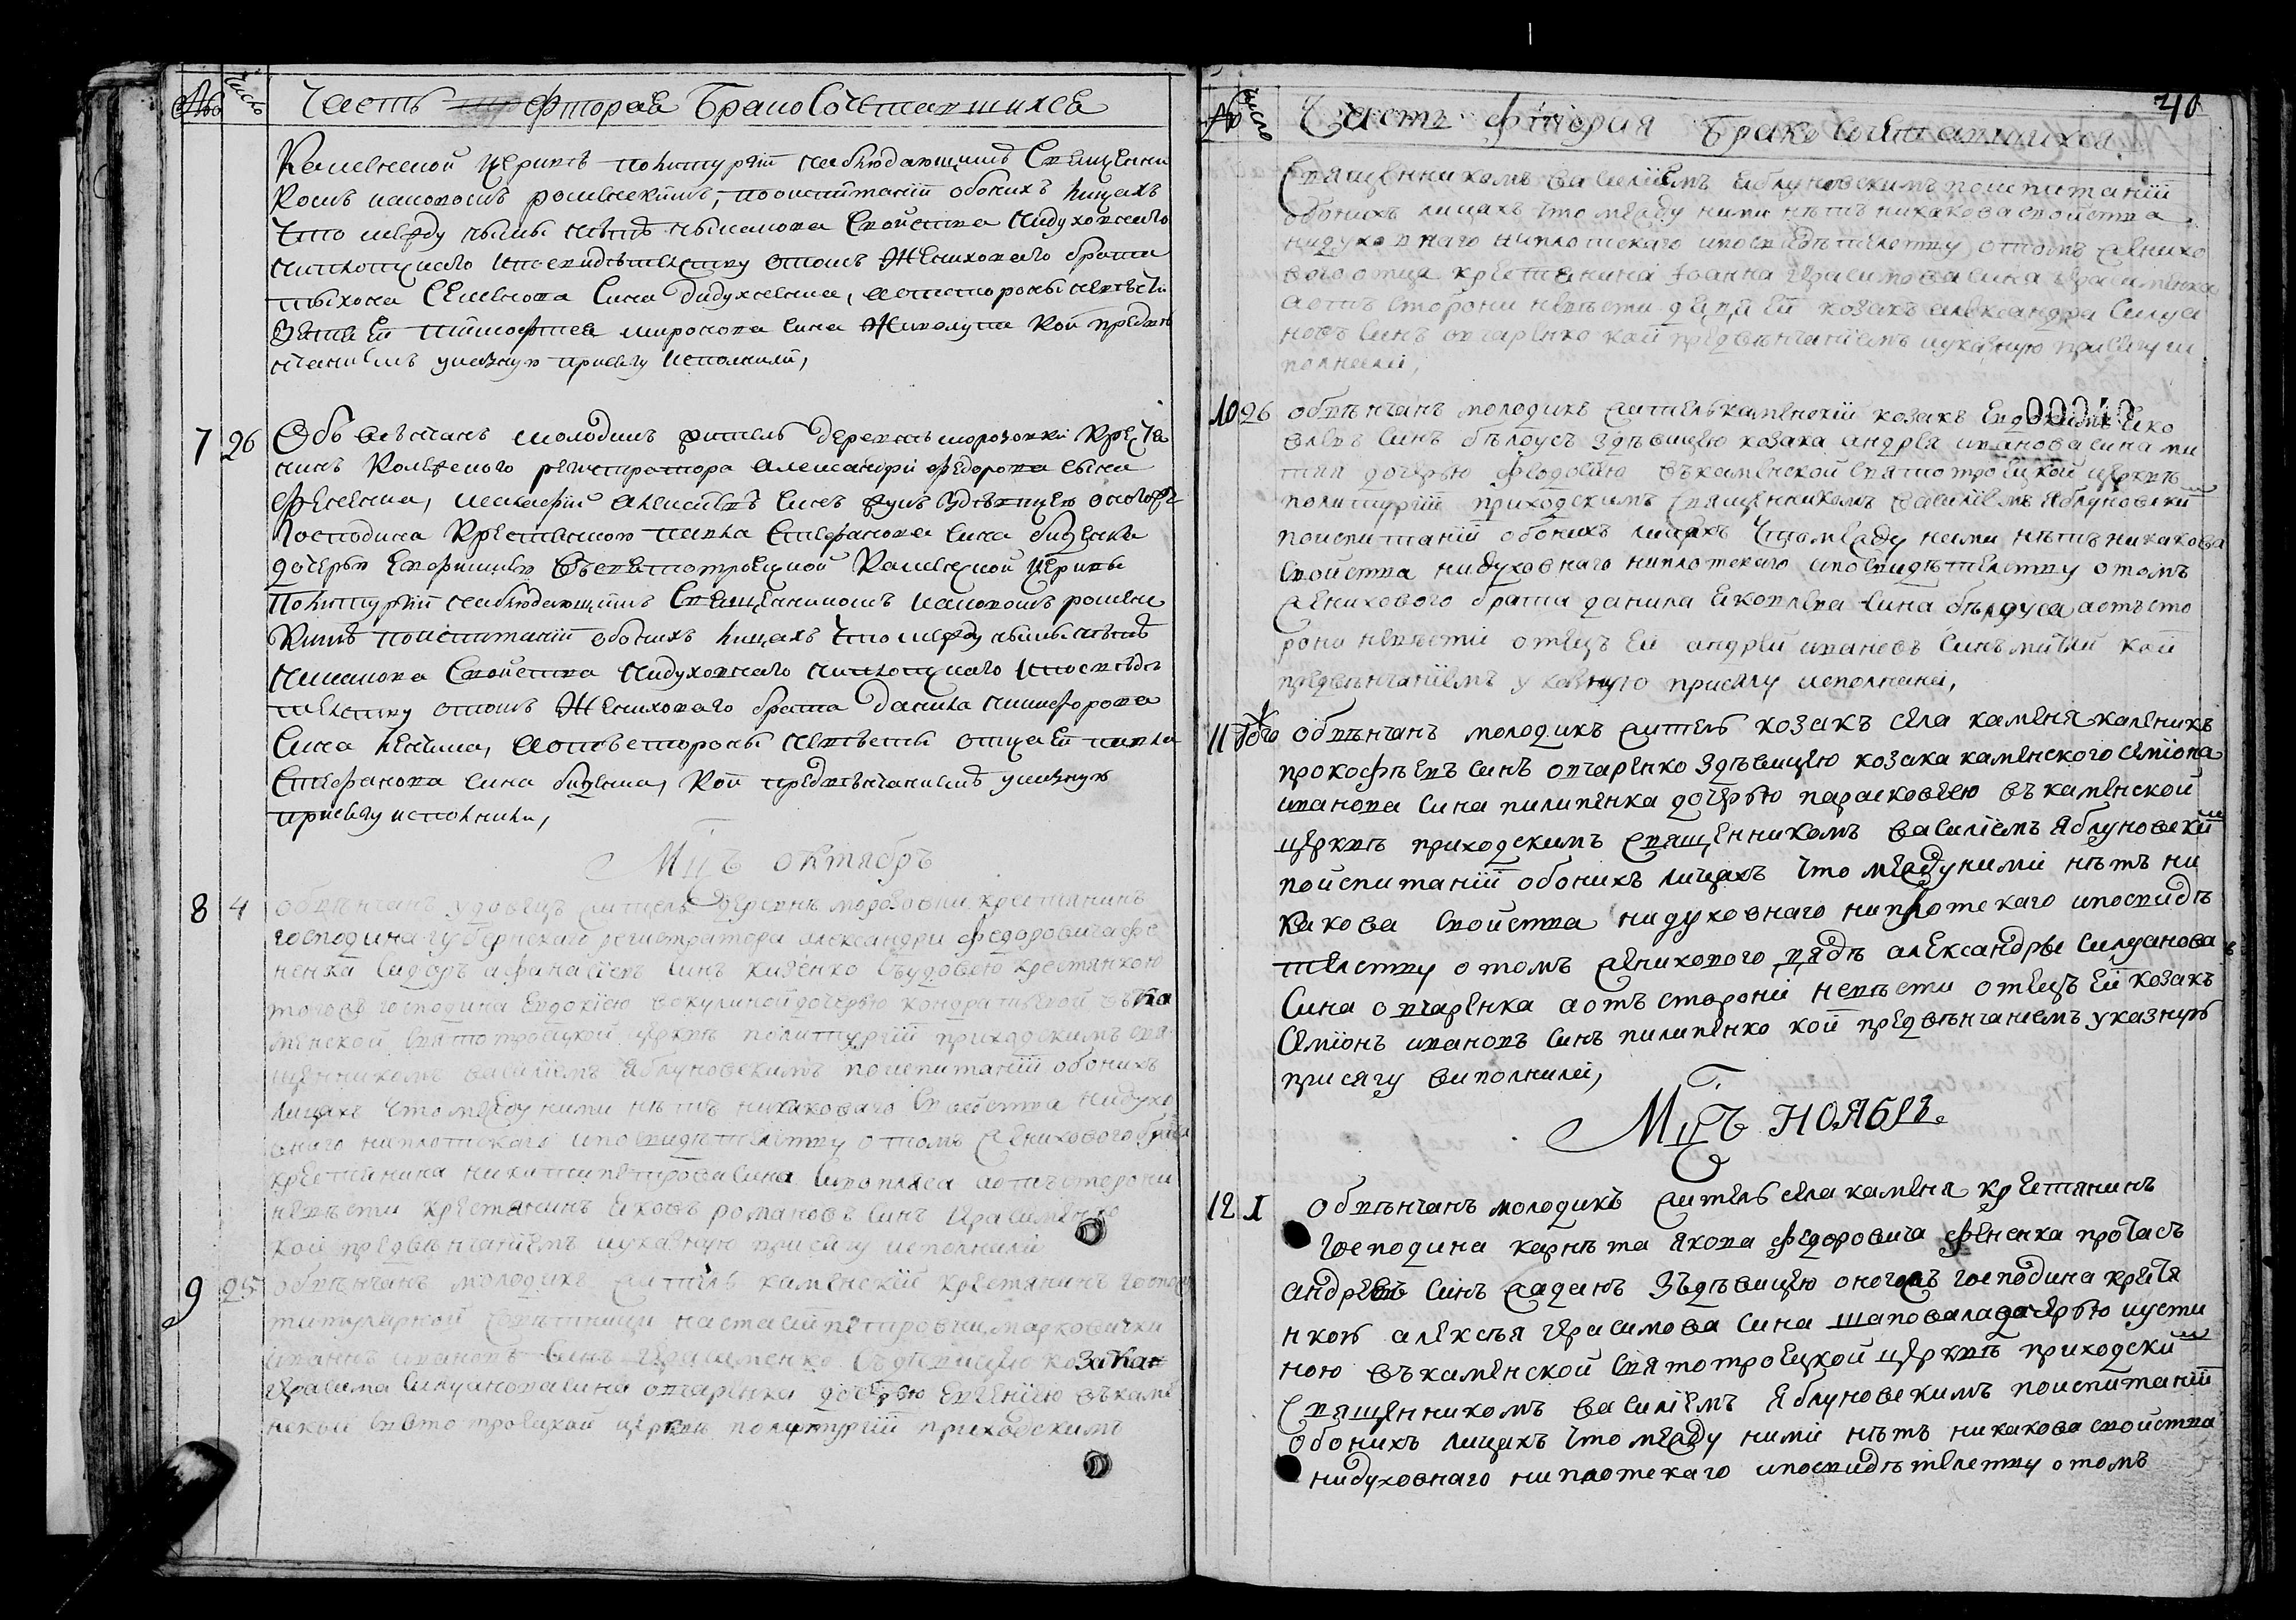 № Число Часть фторая Бракосочетавшихся
Каменской церкве по литургіи наблюдающимъ Священни
комъ по испитаніи обоихъ лицахъ
Что между нымы нѣтъ ныкакова Свойства нидуховнаго
ниплотцкаго и посвидѣтелству отомъ Жениховаго брата
сина а отстороны невѣсти
Зятя Ей Тимофтея миронова сина кои предвѣн
чаниемъ указную присягу исполнили,
7 26 Обвѣнчанъ молодикъ житель деревнѣ морозовки Крестя
нинъ Колежского регистратора александри федорова сына
фененка, синъ Здѣвицею оногожъ
Господина Крестянкою павла Стефанова сина
дочерью Евфимиею Въсвятотроецкой Каменской церкве
По литургіи наблюдающимъ Священникомъ
по испитаніи обоихъ лицахъ Что между нымы нѣтъ
никакова Свойства нидуховнаго ниплотцкаго и посвѣдѣ
телству отомъ Жениховаго брата Данила никифорова
Сина а отстороны невѣсты отца Ей павла
Стефанова сина Кои предвѣнчаниемъ указную
присягу исполнили,
Мцъ октябръ
8 4 обвѣнчанъ удовецъ житель деревнѣ морозовки крестянинъ
господина губернскаго регистратора александри федоровича фе
ненка Сидоръ афанасіевъ Синъ кизенко Съудовою крестянкою
того господина Евдокіею дочерью въ Ка
менской Святотроицкой церквѣ политургіи приходскимъ Свя
щенникомъ василіемъ яблуновскимъ поиспитаніи обоихъ
лицахъ что между ними нѣтъ никаковаго Своиства нидухо
внаго ниплотскаго ипосвидѣтелству отомъ жениховаго брата
крестянина никити петрова Сина аотъсторони
невѣсти крестянинъ яковъ романовъ Синъ Герасименко
кои предвѣнчаніемъ иуказную присягу исполнили
9 25 обвѣнчанъ молодикъ житель каменскіи крестянинъ госпожи
титулярной Совѣтници настасіи петровни марковички
иванъ ивановъ Синъ Герасименко Съдѣвицею козачкою
Герасима Силуанова Сина овчаренка дочерью Евгеніею въкаме
нской Святотроецкой церквѣ полѣтургіи приходскимъ
210
№ Число Часть фторая Бракосочетавшихся
Священникомъ василіемъ яблуновскимъ поиспитаніи
обоихъ лицахъ что между ними нѣтъ никакова своиства
нидуховнаго ниплотскаго ипосвидѣтелству отомъ женихо
вого отца крестянина Іоанна Герасимова сина Герасименка
аотъ Сторони невѣсти дядя Ей козакъ александра Силуа
новъ Синъ овчаренко кои предвѣнчаніемъ иуказную присягу ис
полнили,
10 26 обвѣнчанъ молодикъ житель каменскіи козакъ Евдокимъ Яко
влевъ Синъ бѣлоусъ здѣвицею козака андрѣя иванова сина ми
тія дочерью феодосіею въкаменской Святотроецкой церквѣ
политургіи приходскимъ Священникомъ василіемъ яблуновски
поиспитаніи обоихъ лицахъ Что между ними нѣтъ никакова
Своиства нидуховнаго ниплотскаго ипосвидѣтелству отомъ
жениховаго брата данила Яковлева Сина бѣлоуса аотъсто
рони невѣсти отецъ Еи андрѣи ивановъ Синъ митіи кои
предвѣнчаніемъ указную присягу исполнили,
11 того обвѣнчанъ молодикъ житель козакъ села каменя каленикъ
прокофѣевъ синъ овчаренко здѣвицею козака каменского Семіона
иванова Сина пилипенка дочерью парасковіею въкаменской
церквѣ приходскимъ священникомъ василіемъ яблуновски
поиспитаніи обоихъ лицахъ что между ними нѣтъ ни
какова своиства нидуховнаго ниплотскаго ипосвидѣ
телству отомъ женихового дядѣ александры Силуанова
Сина овчаренка аотъ сторони невѣсти отецъ Еи козакъ
Семіонъ ивановъ Синъ пилипенко кои предвѣнчаніемъ указную
присягу виполнили,
Мцъ НОЯБРЪ.
12 1 обвѣнчанъ молодикъ житель села каменя крестянинъ
господина карнѣта якова федоровича фененка протасъ
андрѣевъ Синъ саданъ Зъдѣвицею оногожъ господина крестя
нкою алексѣя Герасимова Сина шаповала дочерью иусти
ною въкаменской Святотроецкой церквѣ приходски
Священникомъ василіемъ яблуновскимъ поиспитаніи
обоихъ лицахъ что между ними нѣтъ никакова своиства
нидуховнаго ниплотскаго ипосвидѣтелству отомъ